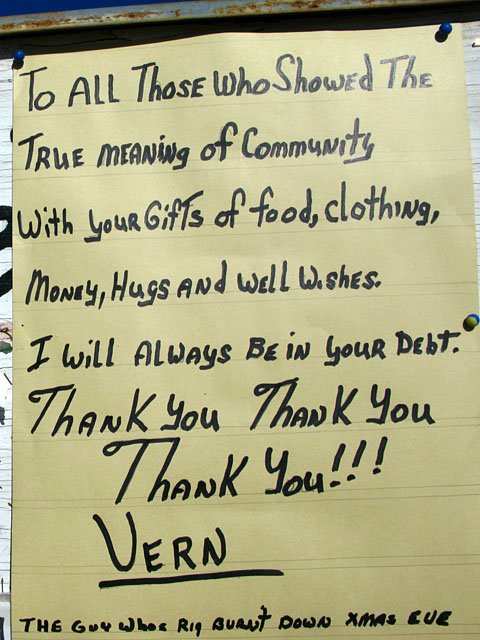 To ALL THOSE WHO SHOWED THE
TRUE MEANING of Community
With your Gifts of food, clothing,
Money, Hugs AND Well Wishes.
I will ALWAYS BE in YOUR DEBT.
THANK YOU THANK YOU
THANK YOU!!!
VERN
THE GUY WHOS RIG BURNT DOWN XMAS EVE